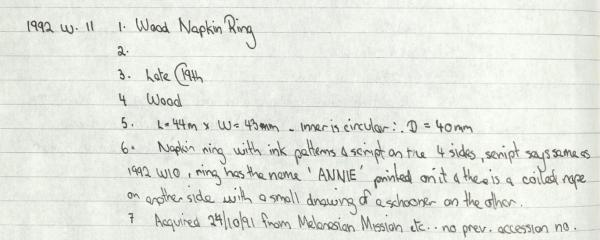 1992 W. 11 1. Wood Napkin Ring
2.
3. Late 19th
4 Wood
5. L=44m x W=43mm - Inner is circular ∴ D = 40mm
6. Napkin ring with ink patterns & script on the 4 sides, script says same as
1992 W10, ring has the name 'ANNIE' printed on it & there is a coiled rope
on another side with a small drawing of a schooner on the other.
7 Acquired 24/10/91 from Melanesian Mission etc.. no prev. accession no.